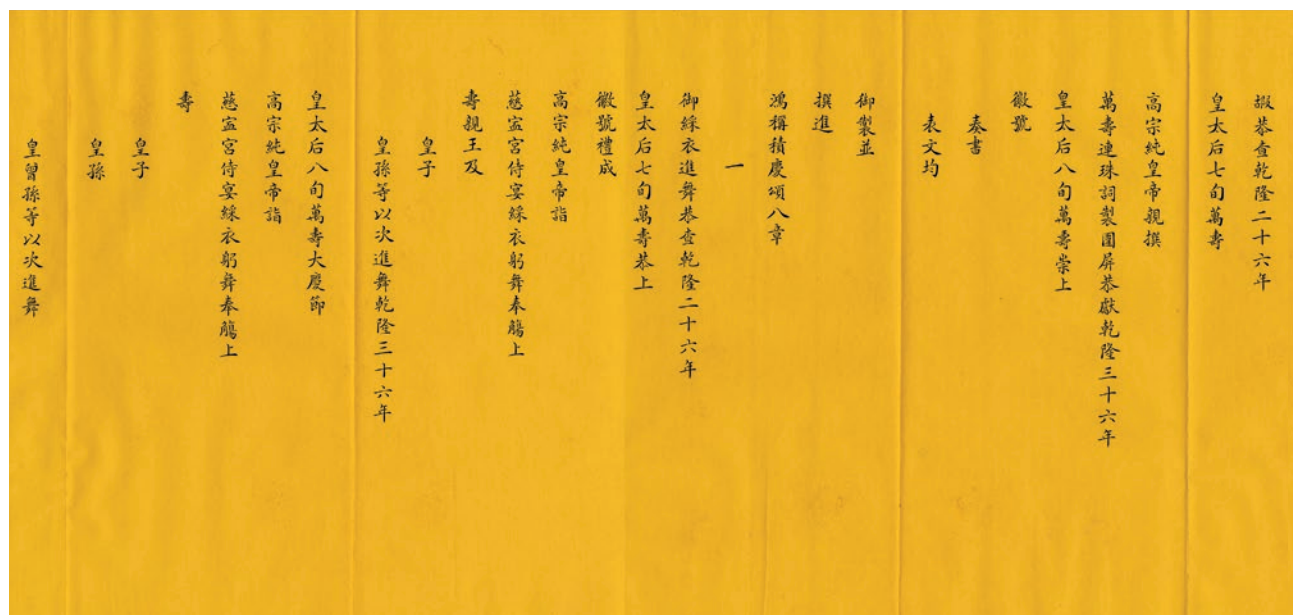 嘏恭查乾隆二十六年
皇太后七旬萬壽
高宗純皇帝親撰
萬壽連珠詞製圍屏恭獻乾隆三十六年
皇太后八旬萬壽崇上
徽號
奏書
表文均
御製並
撰進
鴻稱積慶頌八章
一
御綵衣進舞恭查乾隆二十六年
皇太后七旬萬壽恭上
徽號禮成
高宗純皇帝詣
慈寍宮侍宴綵衣躬舞奉觴上
壽親王及
皇子
皇孫等以次進舞乾隆三十六年
皇太后八旬萬壽大慶節
高宗純皇帝詣
慈寍宮侍宴綵衣躬舞奉觴上
壽
皇子
皇孫
皇曾孫等以次進舞